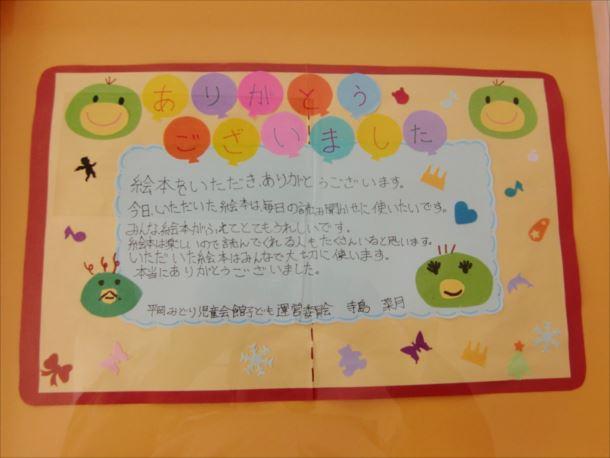 ありがとう
ございました
絵本をいただき、ありがとうございます。
今日、いただいた絵本は、毎日の読み聞かせに使いたいです。
みんな絵本がふえてとてもうれしいです。
絵本は楽しいので読んでくれる人もたくさんいると思います。
いただいた絵本はみんなで大切に使います。
本当にありがとうございました。
平岡みどり児童会館子ども運営委員会 寺島 菜月